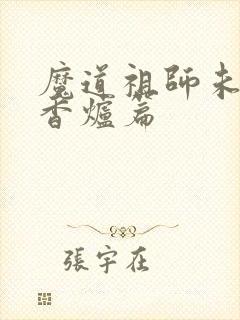 魔道祖師未
香爐篇
張宇在